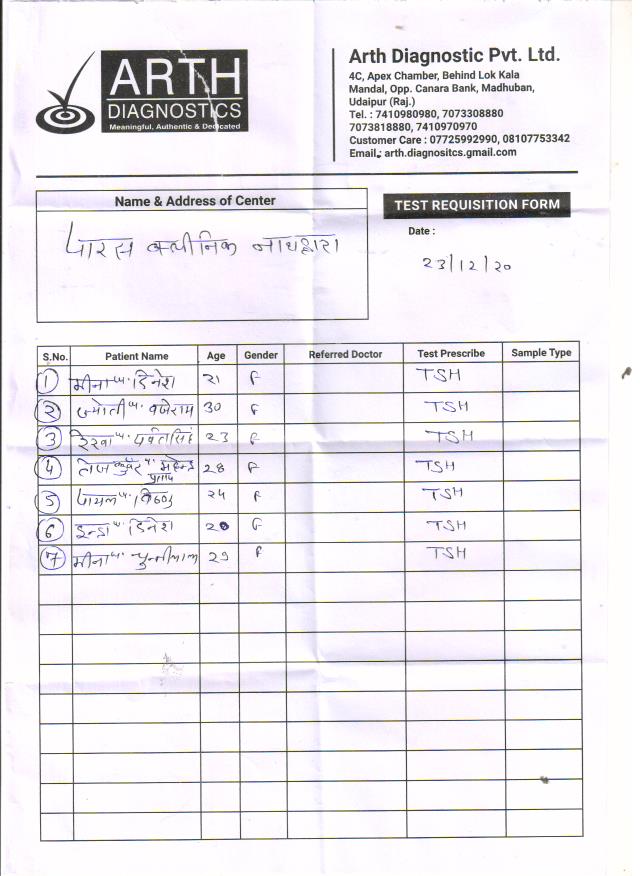 ARTH
DIAGNOSTICS
Meaningful, Authentic & Dedicated
Arth Diagnostic Pvt. Ltd.
4C, Apex Chamber, Behind Lok Kala
Mandal, Opp. Canara Bank, Madhuban,
Udaipur (Raj.)
Tel. : 7410980980, 7073308880
7073818880, 7410970970
Customer Care : 07725992990, 08107753342
Email.: arth.diagnositcs.gmail.com
Name & Address of Center
TEST REQUISITION FORM
Date :
पारस क्लीनिक नाथद्वारा
23/12/20
S.No. Patient Name Age Gender Referred Doctor Test Prescribe Sample Type
1 मीना प. दिनेश 21 F TSH
2 ज्योती प. 30 F TSH
3 रेखा प. पर्वतसिंह 23 F TSH
4 तेज कुंवर प. महेन्द्र प्रताप 28 F TSH
5 पायल प. विष्णु 24 F TSH
6 इन्द्रा प. दिनेश 20 F TSH
7 मीना प. चुन्नीलाल 29 F TSH